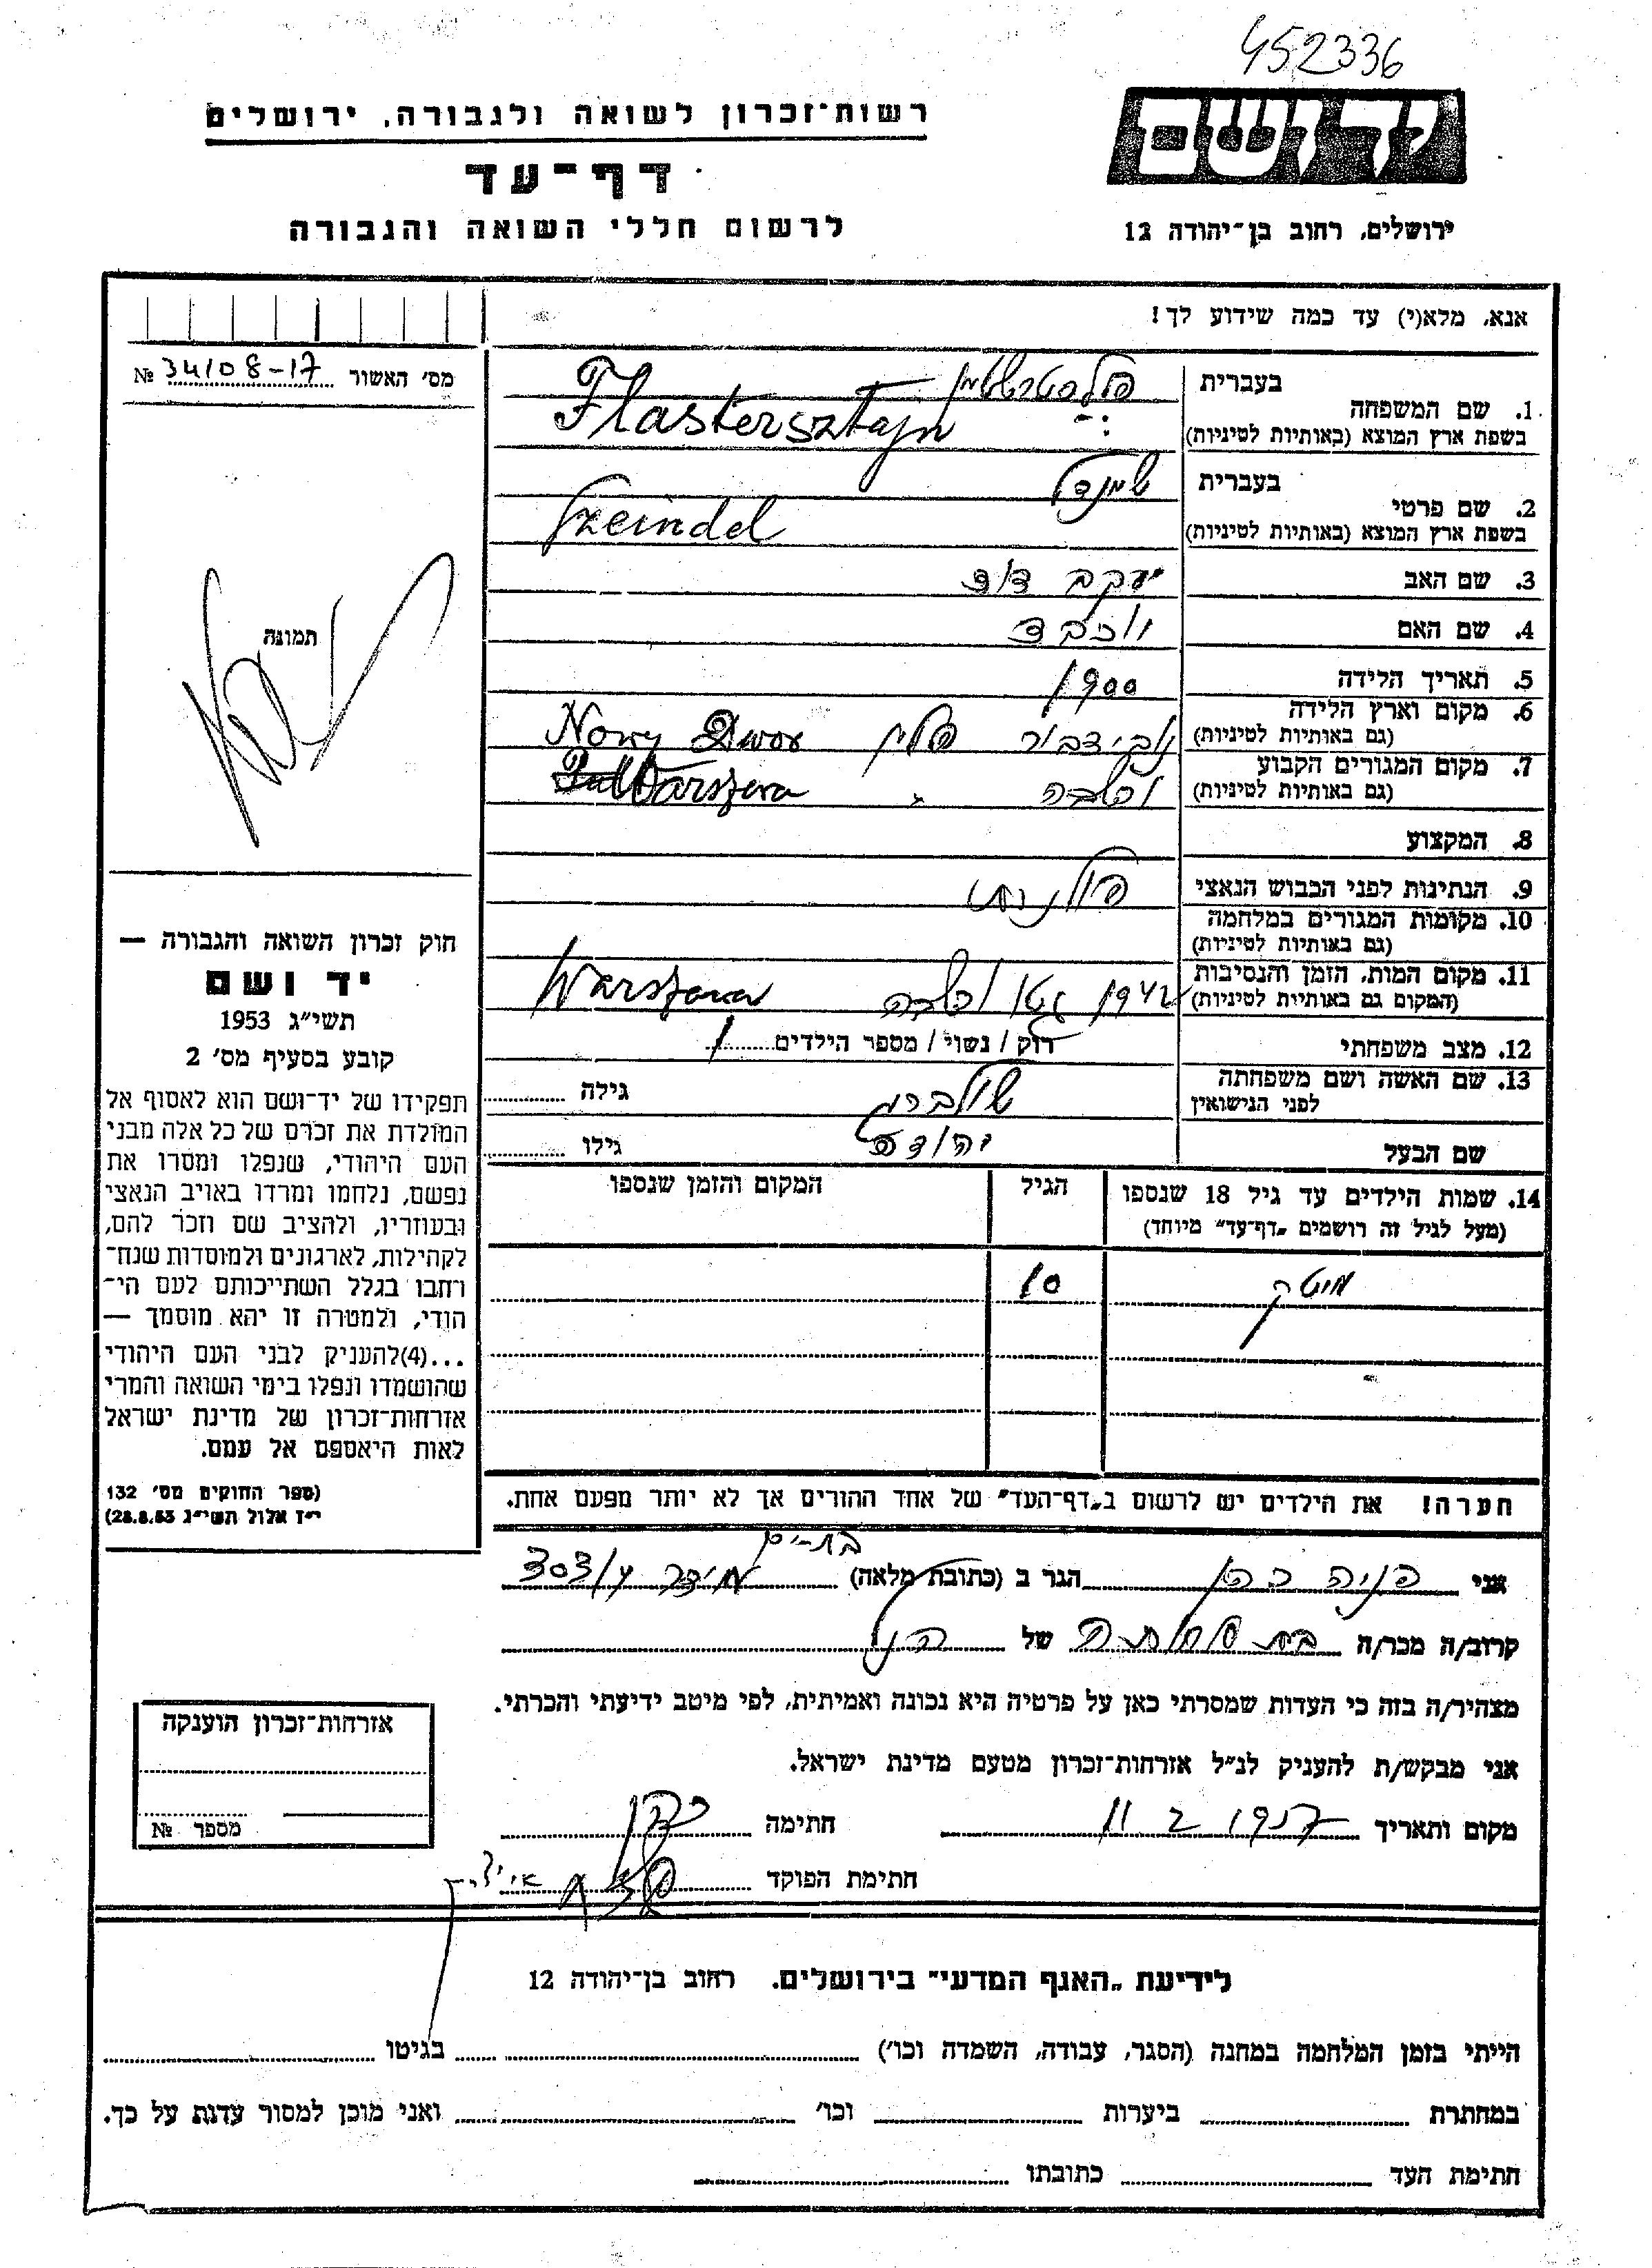 452336
יד ושם
רשות־זכרון לשואה ולגבורה, ירושלים
דף־עד
לרשום חללי השואה והגבורה
ירושלים, רחוב בן־יהודה 12
אנא, מלא(י) עד כמה שידוע לך!
מס' האשור 34108-17 №
תמונה
חוק זכרון השואה והגבורה —
יד ושם
תשי"ג 1953
קובע בסעיף מס' 2
תפקידו של יד־ושם הוא לאסוף אל
המולדת את זכרם של כל אלה מבני
העם היהודי, שנפלו ומסרו את
נפשם, נלחמו ומרדו באויב הנאצי
ובעוזריו, ולהציב שם וזכר להם,
לקהילות, לארגונים ולמוסדות שנח־
רחבו בגלל השתייכותם לעם הי־
הודי, ולמטרה זו יהא מוסמך —
...(4)להעניק לבני העם היהודי
שהושמדו ונפלו בימי השואה והמרי
אזרחות־זכרון של מדינת ישראל
לאות היאספם אל עמם.
(ספר החוקים מס' 132
י"ז אלול תשי"ג 28.8.53)
בעברית פלסטרשטיין
1. שם המשפחה
בשפת ארץ המוצא (באותיות לטיניות) Flastersztajn
בעברית שיינדל
2. שם פרטי
בשפת ארץ המוצא (באותיות לטיניות) Szeindel
3. שם האב יעקב דוד
4. שם האם יוכבד
5. תאריך הלידה 1900
6. מקום וארץ הלידה
(גם באותיות לטיניות) נובידבור פולין Nowy Dwor
7. מקום המגורים הקבוע
(גם באותיות לטיניות) ורשבה Warszawa
8. המקצוע
9. הנתינות לפני הכבוש הנאצי פולנית
10. מקומות המגורים במלחמה
(גם באותיות לטיניות)
11. מקום המות, הזמן והנסיבות
(המקום גם באותיות לטיניות) 1942 גטו ורשבה Warszawa
12. מצב משפחתי רוק / נשוי / מספר הילדים 1
13. שם האשה ושם משפחתה
לפני הנישואין גילה
שם הבעל יהודה גילו
14. שמות הילדים עד גיל 18 שנספו
(מעל לגיל זה רושמים „דף־עד" מיוחד)
הגיל
המקום והזמן שנספו
מוטק 10
הערה! את הילדים יש לרשום ב„דף־העד" של אחד ההורים אך לא יותר מפעם אחת.
בת-ים
אני פניה כהן הגר ב (כתובת מלאה)
קרוב/ה מכר/ה של הנ"ל
מצהיר/ה בזה כי העדות שמסרתי כאן על פרטיה היא נכונה ואמיתית, לפי מיטב ידיעתי והכרתי.
אני מבקש/ת להעניק לנ"ל אזרחות־זכרון מטעם מדינת ישראל.
מקום ותאריך 11 2 1957 חתימה כהן
חתימת הפוקד
אזרחות־זכרון הוענקה
מספר №
לידיעת „האגף המדעי" בירושלים. רחוב בן־יהודה 12
הייתי בזמן המלחמה במחנה (הסגר, עבודה, השמדה וכו') בגיטו
במחתרת ביערות וכו' ואני מוכן למסור עדות על כך.
חתימת העד כתובתו